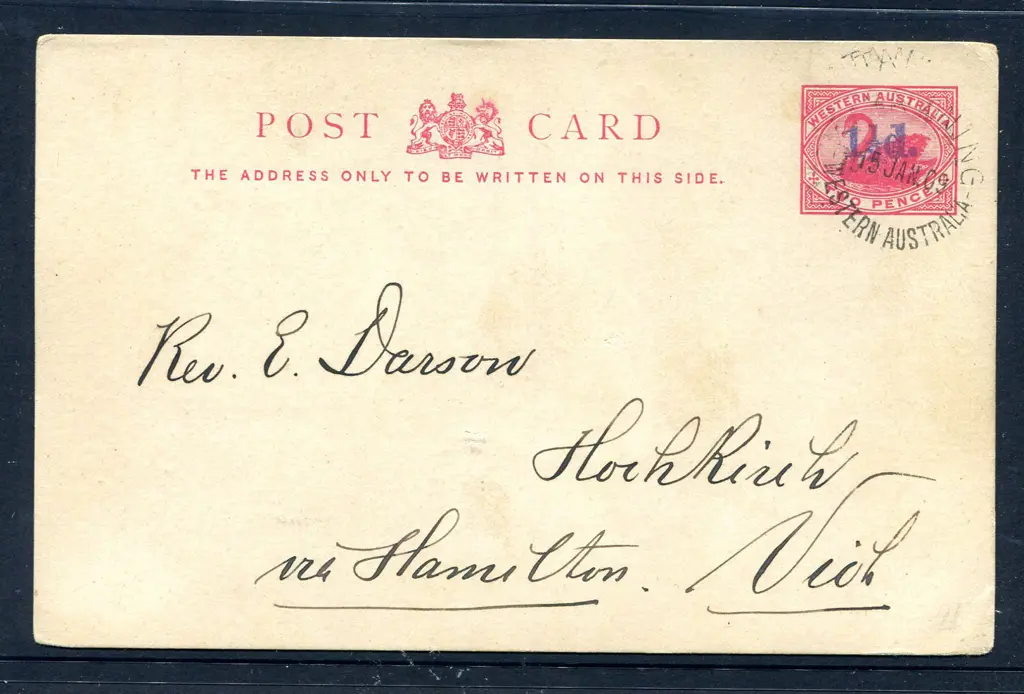 POST CARD
THE ADDRESS ONLY TO BE WRITTEN ON THIS SIDE.
WESTERN AUSTRALIA
1½d.
PENCE
15 JAN 09
WESTERN AUSTRALIA
Rev. E. Darson
Hochkirch
via Hamilton. Vich